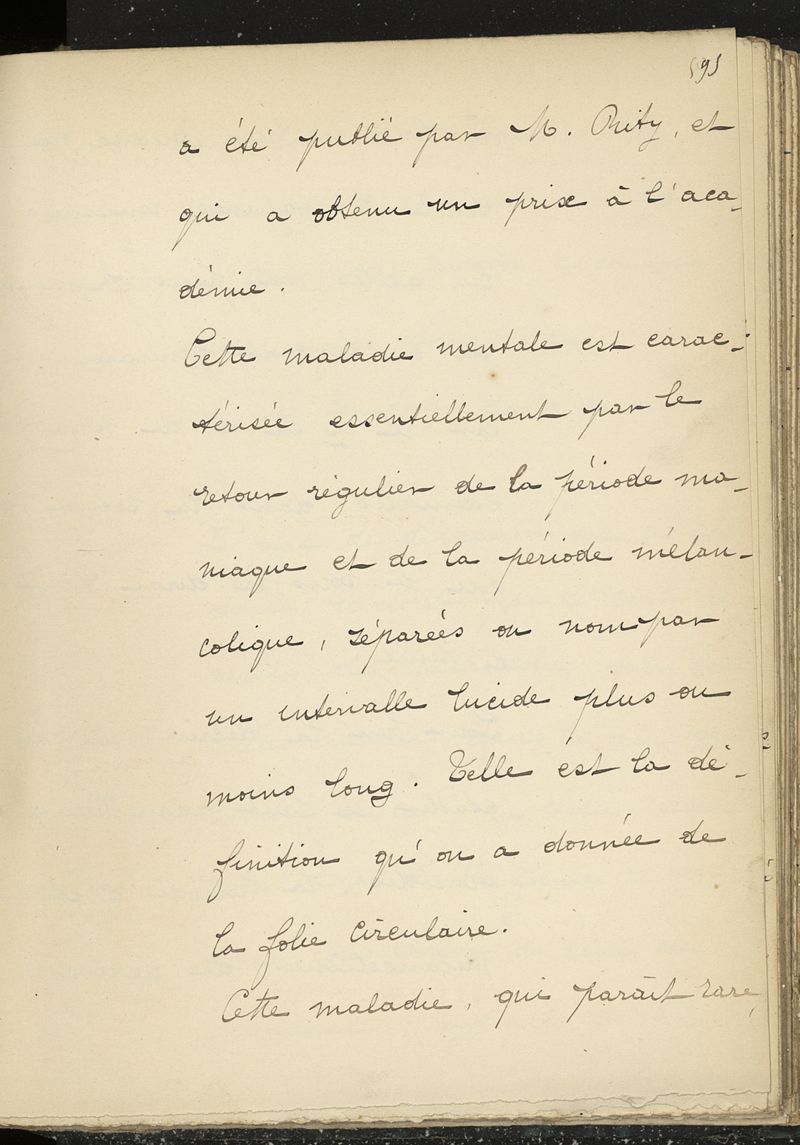 595
a été publié par M. Ritty, et
qui a obtenu un prix à l'aca-
démie.
Cette maladie mentale est carac-
térisée essentiellement par le
retour régulier de la période ma-
niaque et de la période mélan-
colique, séparées ou non par
un intervalle lucide plus ou
moins long. Telle est la dé-
finition qu'on a donnée de
la folie circulaire.
Cette maladie, qui paraît rare,